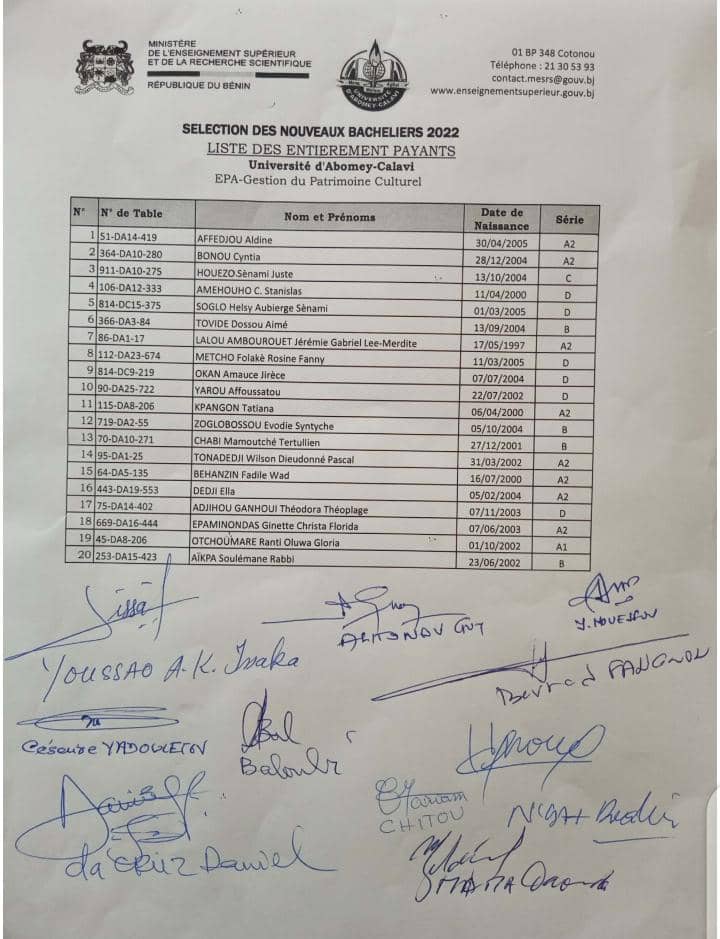 MINISTÈRE
DE L'ENSEIGNEMENT SUPÉRIEUR
ET DE LA RECHERCHE SCIENTIFIQUE
RÉPUBLIQUE DU BÉNIN
UNIVERSITÉ
D'ABOMEY-CALAVI
01 BP 348 Cotonou
Téléphone : 21 30 53 93
contact.mesrs@gouv.bj
www.enseignementsuperieur.gouv.bj
SELECTION DES NOUVEAUX BACHELIERS 2022
LISTE DES ENTIEREMENT PAYANTS
Université d'Abomey-Calavi
EPA-Gestion du Patrimoine Culturel
N° N° de Table Nom et Prénoms Date de Naissance Série
1 51-DA14-419 AFFEDJOU Aldine 30/04/2005 A2
2 364-DA10-280 BONOU Cyntia 28/12/2004 A2
3 911-DA10-275 HOUEZO Sènami Juste 13/10/2004 C
4 106-DA12-333 AMEHOUHO C. Stanislas 11/04/2000 D
5 814-DC15-375 SOGLO Helsy Aubierge Sènami 01/03/2005 D
6 366-DA3-84 TOVIDE Dossou Aimé 13/09/2004 B
7 86-DA1-17 LALOU AMBOUROUET Jérémie Gabriel Lee-Merdite 17/05/1997 A2
8 112-DA23-674 METCHO Folakè Rosine Fanny 11/03/2005 D
9 814-DC9-219 OKAN Amauce Jirèce 07/07/2004 D
10 90-DA25-722 YAROU Affoussatou 22/07/2002 D
11 115-DA8-206 KPANGON Tatiana 06/04/2000 A2
12 719-DA2-55 ZOGLOBOSSOU Evodie Syntyche 05/10/2004 B
13 70-DA10-271 CHABI Mamoutché Tertullien 27/12/2001 B
14 95-DA1-25 TONADEDJI Wilson Dieudonné Pascal 31/03/2002 A2
15 64-DA5-135 BEHANZIN Fadile Wad 16/07/2000 A2
16 443-DA19-553 DEDJI Ella 05/02/2004 A2
17 75-DA14-402 ADJIHOU GANHOUI Théodora Théoplage 07/11/2003 D
18 669-DA16-444 EPAMINONDAS Ginette Christa Florida 07/06/2003 A2
19 45-DA8-206 OTCHOUMARE Ranti Oluwa Gloria 01/10/2002 A1
20 253-DA15-423 AÏKPA Soulémane Rabbi 23/06/2002 B
YOUSSAO A.K. Issaka
GUY
Y. HOUESSOU
FANGNON
YADOULETON
CHITOU
da CRUZ Daniel